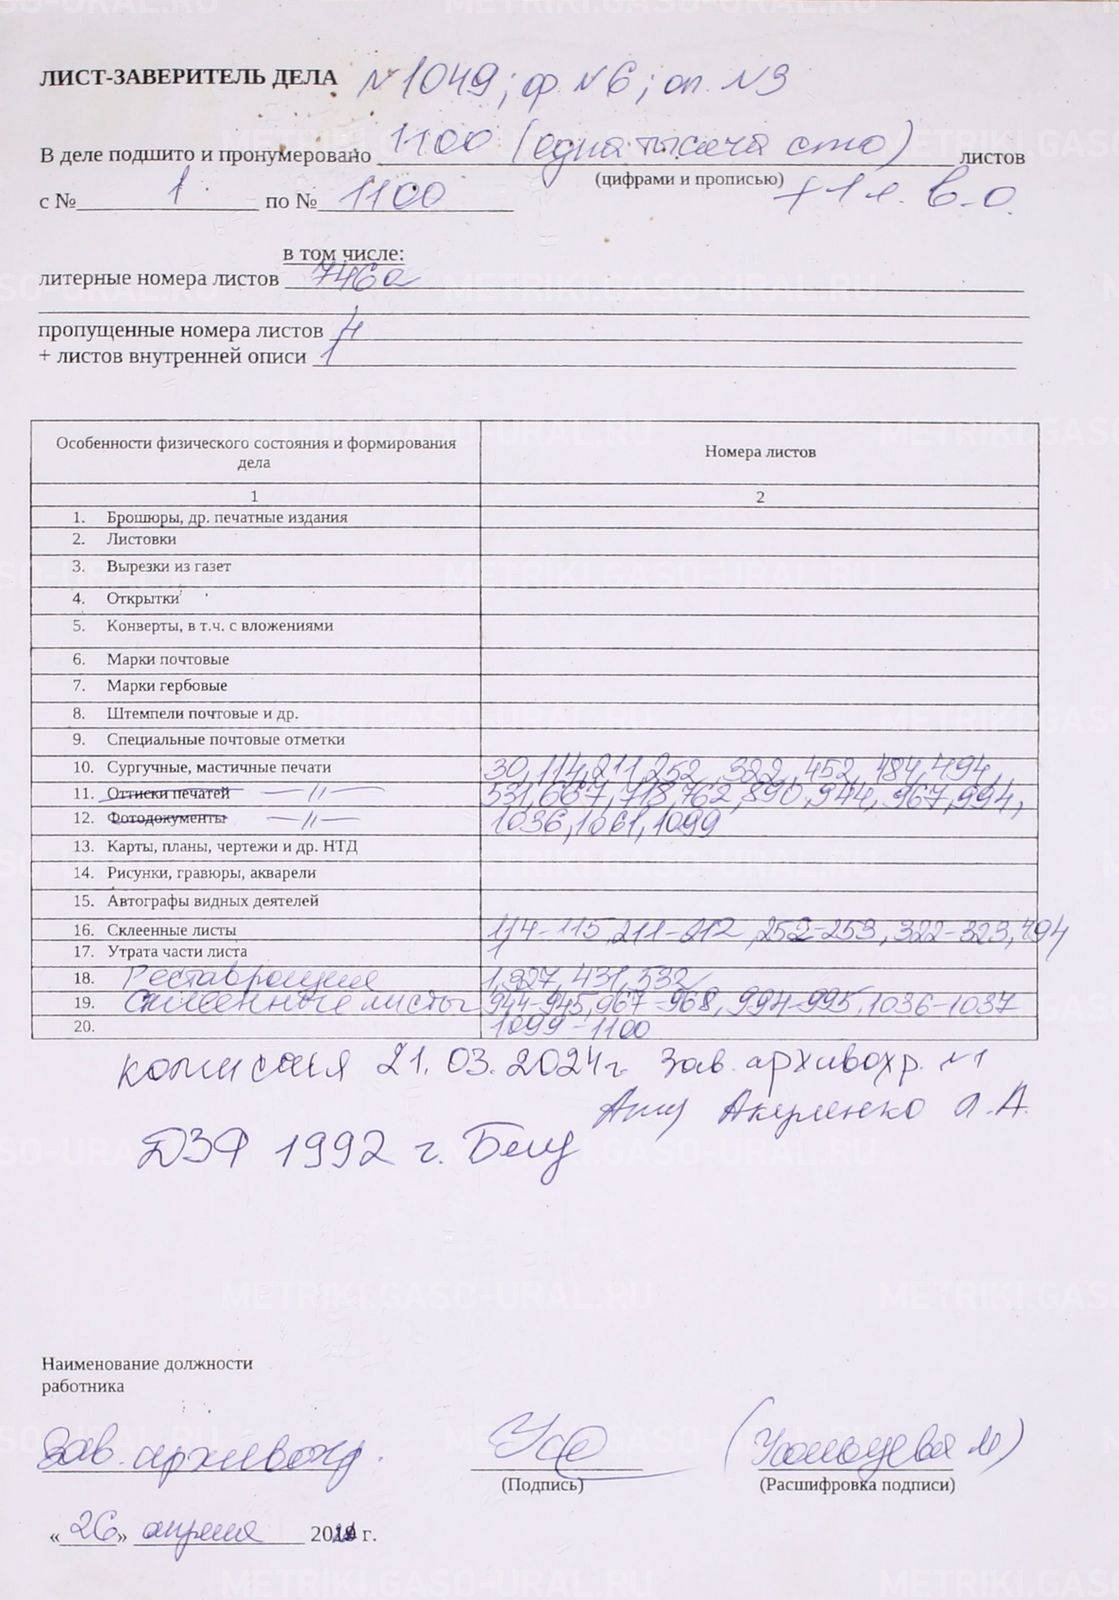 METRIKI.GASO-URAL.RU
ЛИСТ-ЗАВЕРИТЕЛЬ ДЕЛА №1049; ф. №6; оп. №3
В деле подшито и пронумеровано 1100 (одна тысяча сто) листов
(цифрами и прописью) +1 л. в.о.
с № 1 по № 1100
в том числе:
литерные номера листов 746а
пропущенные номера листов
+ листов внутренней описи 1
Особенности физического состояния и формирования дела Номера листов
1 2
1. Брошюры, др. печатные издания
2. Листовки
3. Вырезки из газет
4. Открытки
5. Конверты, в т.ч. с вложениями
6. Марки почтовые
7. Марки гербовые
8. Штемпели почтовые и др.
9. Специальные почтовые отметки
10. Сургучные, мастичные печати 30, 114, 211, 252, 322, 452, 484, 494,
11. Оттиски печатей —//— 531, 667, 718, 762, 890, 944, 967, 994,
12. Фотодокументы —//— 1036, 1061, 1099
13. Карты, планы, чертежи и др. НТД
14. Рисунки, гравюры, акварели
15. Автографы видных деятелей
16. Склеенные листы 114-115, 211-212, 252-253, 322-323, 494
17. Утрата части листа 1
18. Реставрация 1, 327, 431, 532
19. Склеенные листы 944-945, 967-968, 994-995, 1036-1037
20. 1099-1100
комиссия 21.03.2024г. Зав. архивохр. №1
Акуленко Л.А.
ДЗФ 1992 г.
Наименование должности
работника
Зав. архивохр.
(Подпись) (Расшифровка подписи)
«26» апреля г.